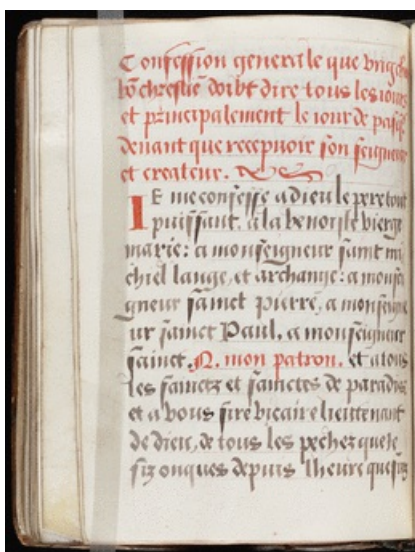 Confession generale que ung chũ
bõ chrestiẽ doibt dire tous les iours
et principalement le iour de pasq̃s
deuant que recepuoir son seigneur
et createur.
IE me confesse a dieu le pere tout
puissant, a la benoiste vierge
marie: a monseigneur saint mi
chiel lange, et archange: a monsei
gneur sainct pierre, a monseigne
ur sainct Paul, a monseigneur
sainct. N. mon patron. et a tous
les sainctz et sainctes de paradis
et a vous sire vicaire lieutenant
de dieu, de tous les pechez que ie
fiz onques depuis lheure que ie fuz